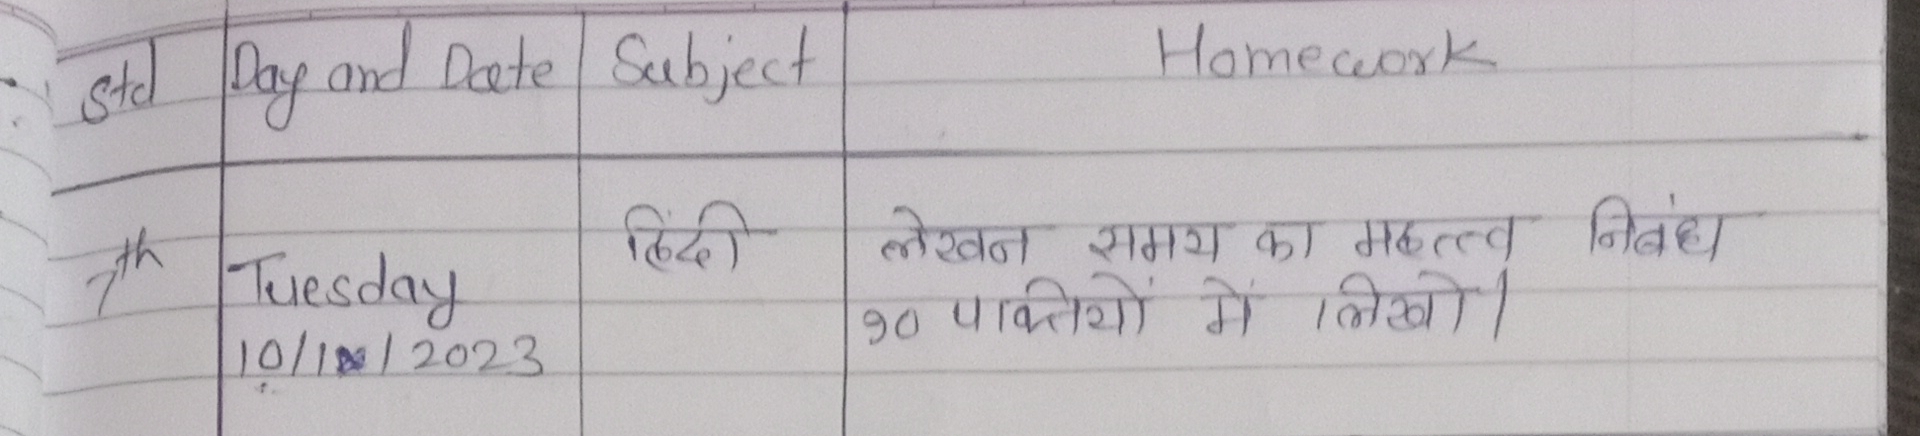 Std Day and Date Subject Homework
7th Tuesday हिंदी लेखन समय का महत्त्व निबंध
10/1 / 2023 १० पक्तियों में लिखो।